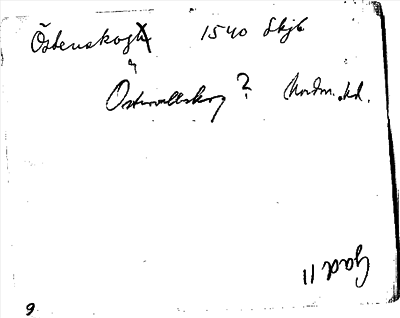 Östenskog 1540 Skjb
Ostervallskog ? Nordm. hd.
Gad 11
9